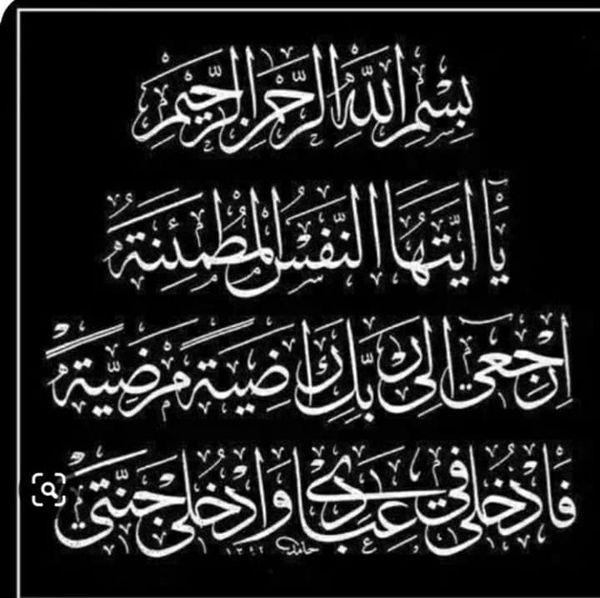 بِسْمِ اللّٰهِ الرَّحْمٰنِ الرَّحِيْمِ
يَا اَيَّتُهَا النَّفْسُ الْمُطْمَئِنَّةُ
اِرْجِعِي اِلٰى رَبِّكِ رَاضِيَةً مَرْضِيَّةً
فَادْخُلِي فِي عِبَادِي وَادْخُلِي جَنَّتِي
حامد ١٣٨٢